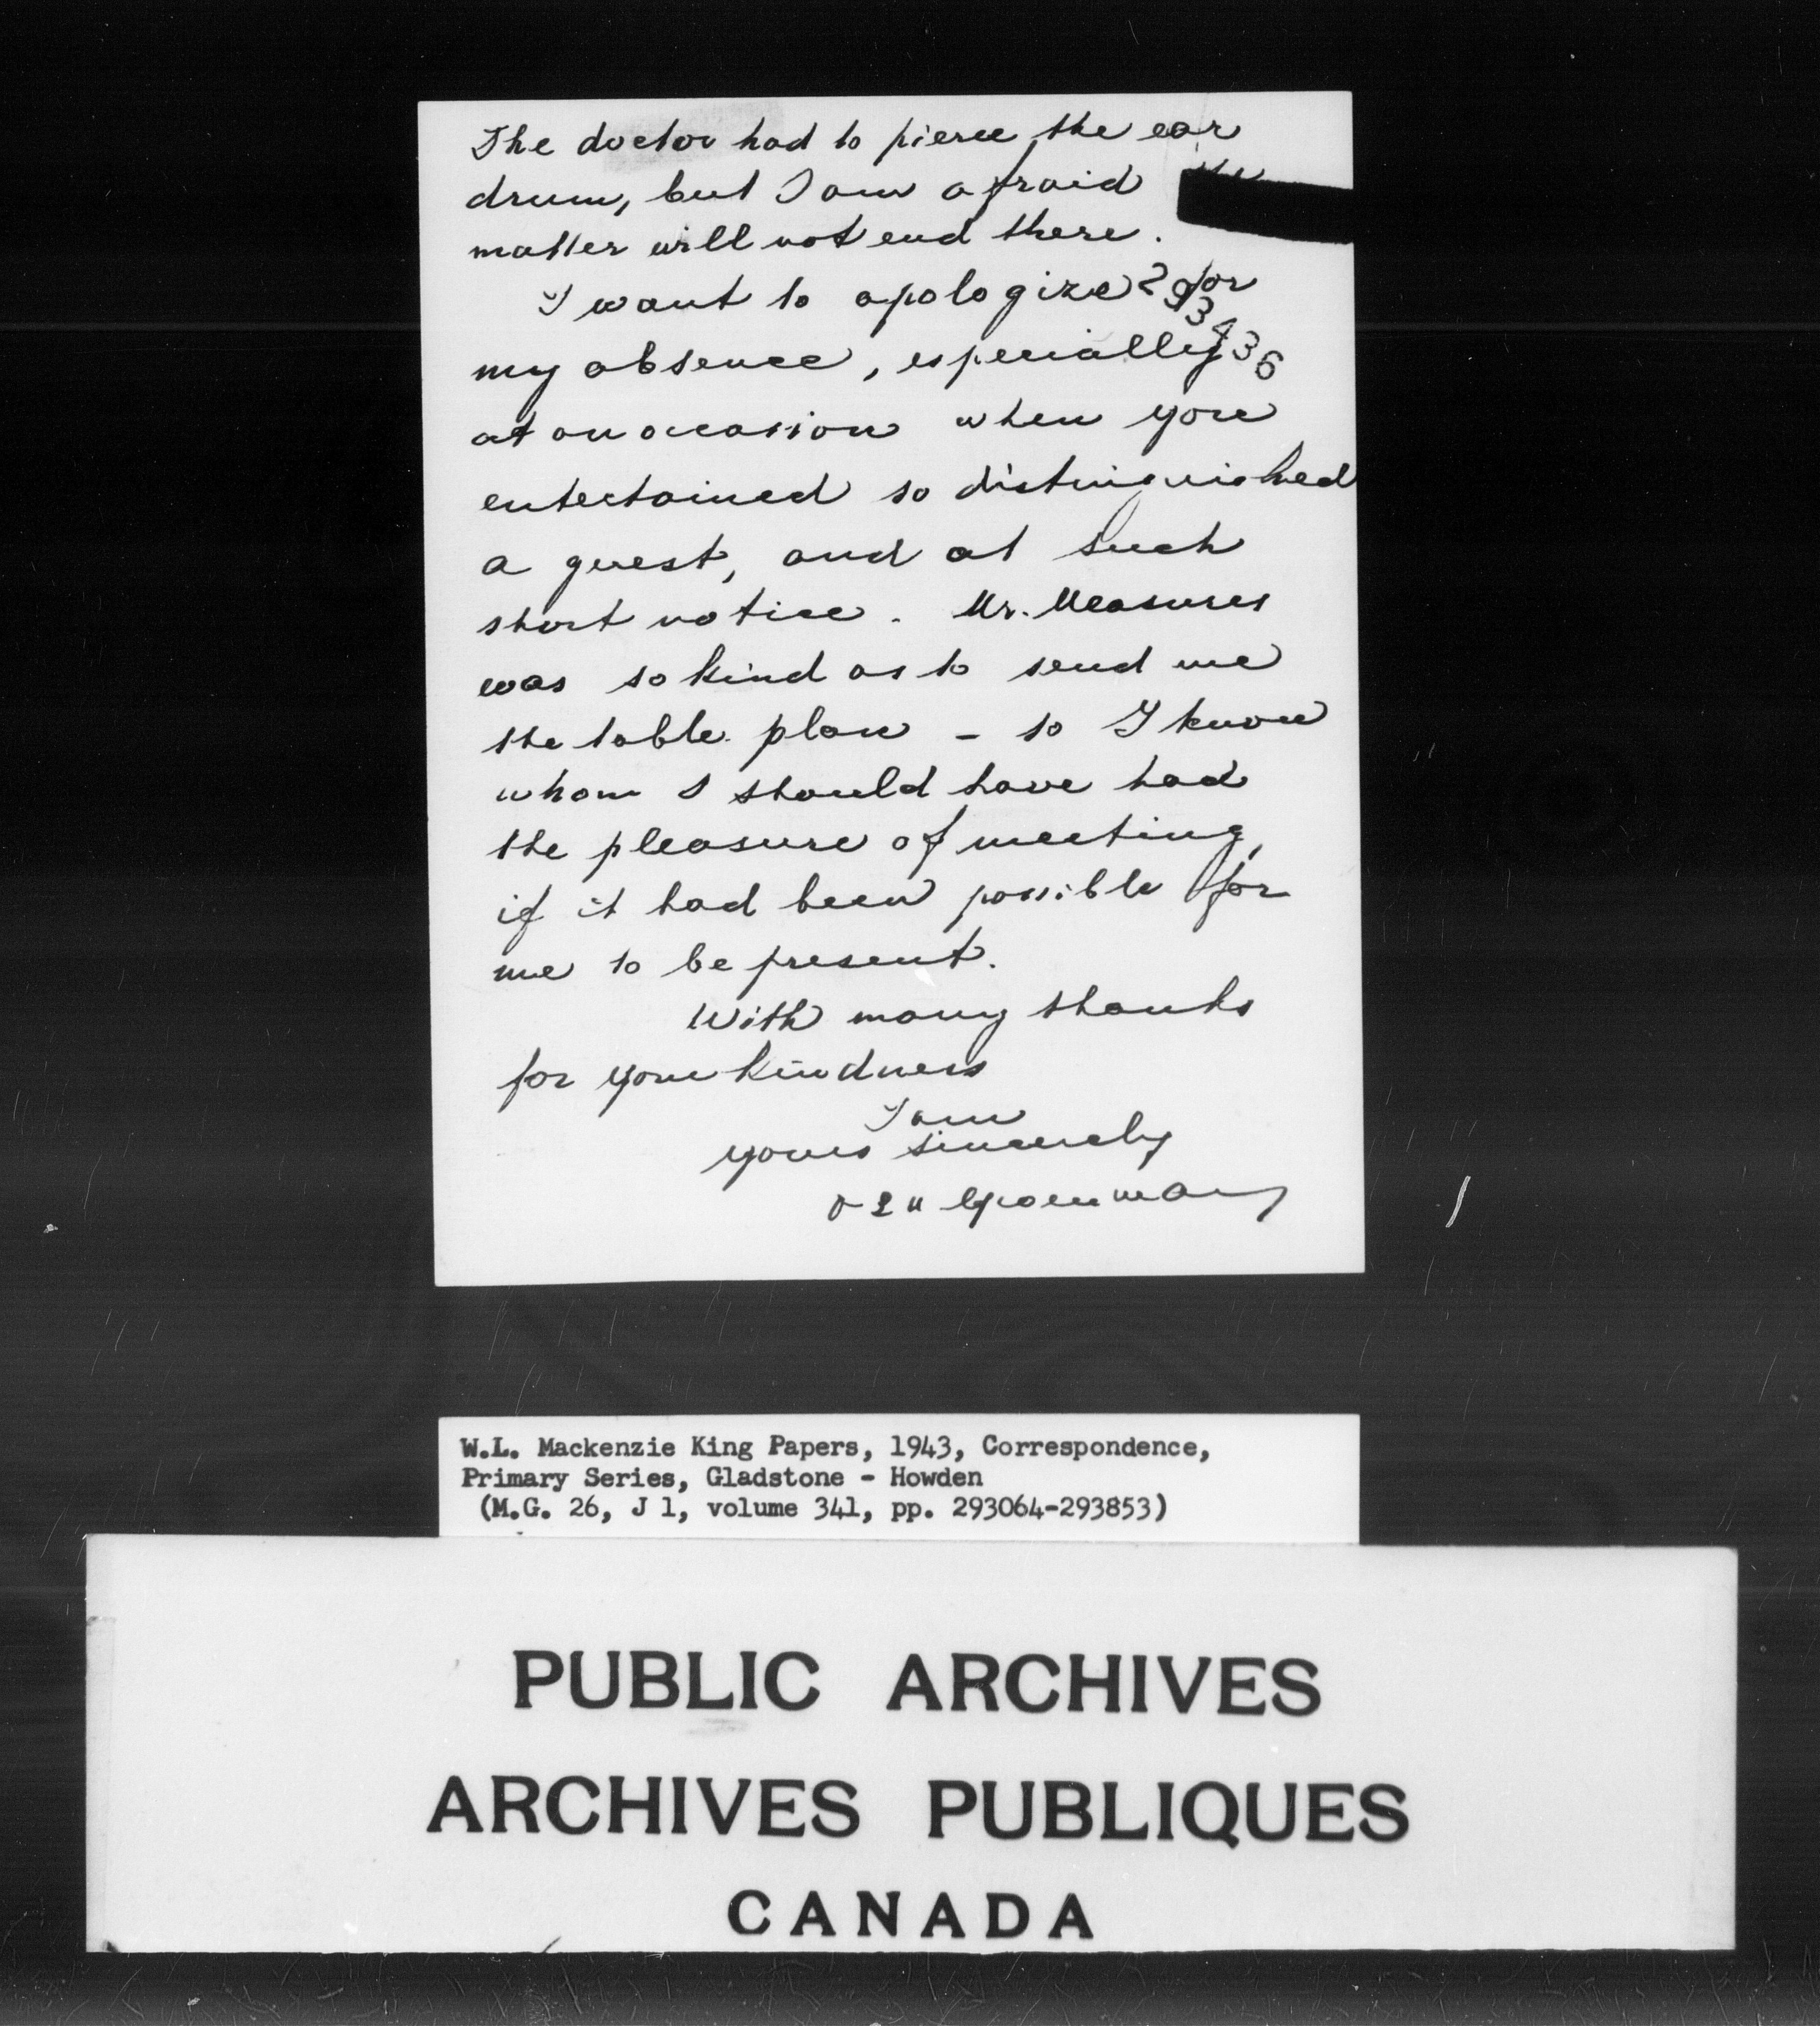 The doctor had to pierce the ear
drum, but I am afraid
matter will not end there.
293436
I want to apologize for
my absence, especially
at an occasion when you
entertained so distinguished
a guest, and at such
short notice. Mr. Measures
was so kind as to send me
the table plan - so I know
whom I should have had
the pleasure of meeting,
if it had been possible for
me to be present.
With many thanks
for your kindness
I am
yours sincerely
W.L. Mackenzie King Papers, 1943, Correspondence,
Primary Series, Gladstone - Howden
(M.G. 26, J 1, volume 341, pp. 293064-293853)
PUBLIC ARCHIVES
ARCHIVES PUBLIQUES
CANADA